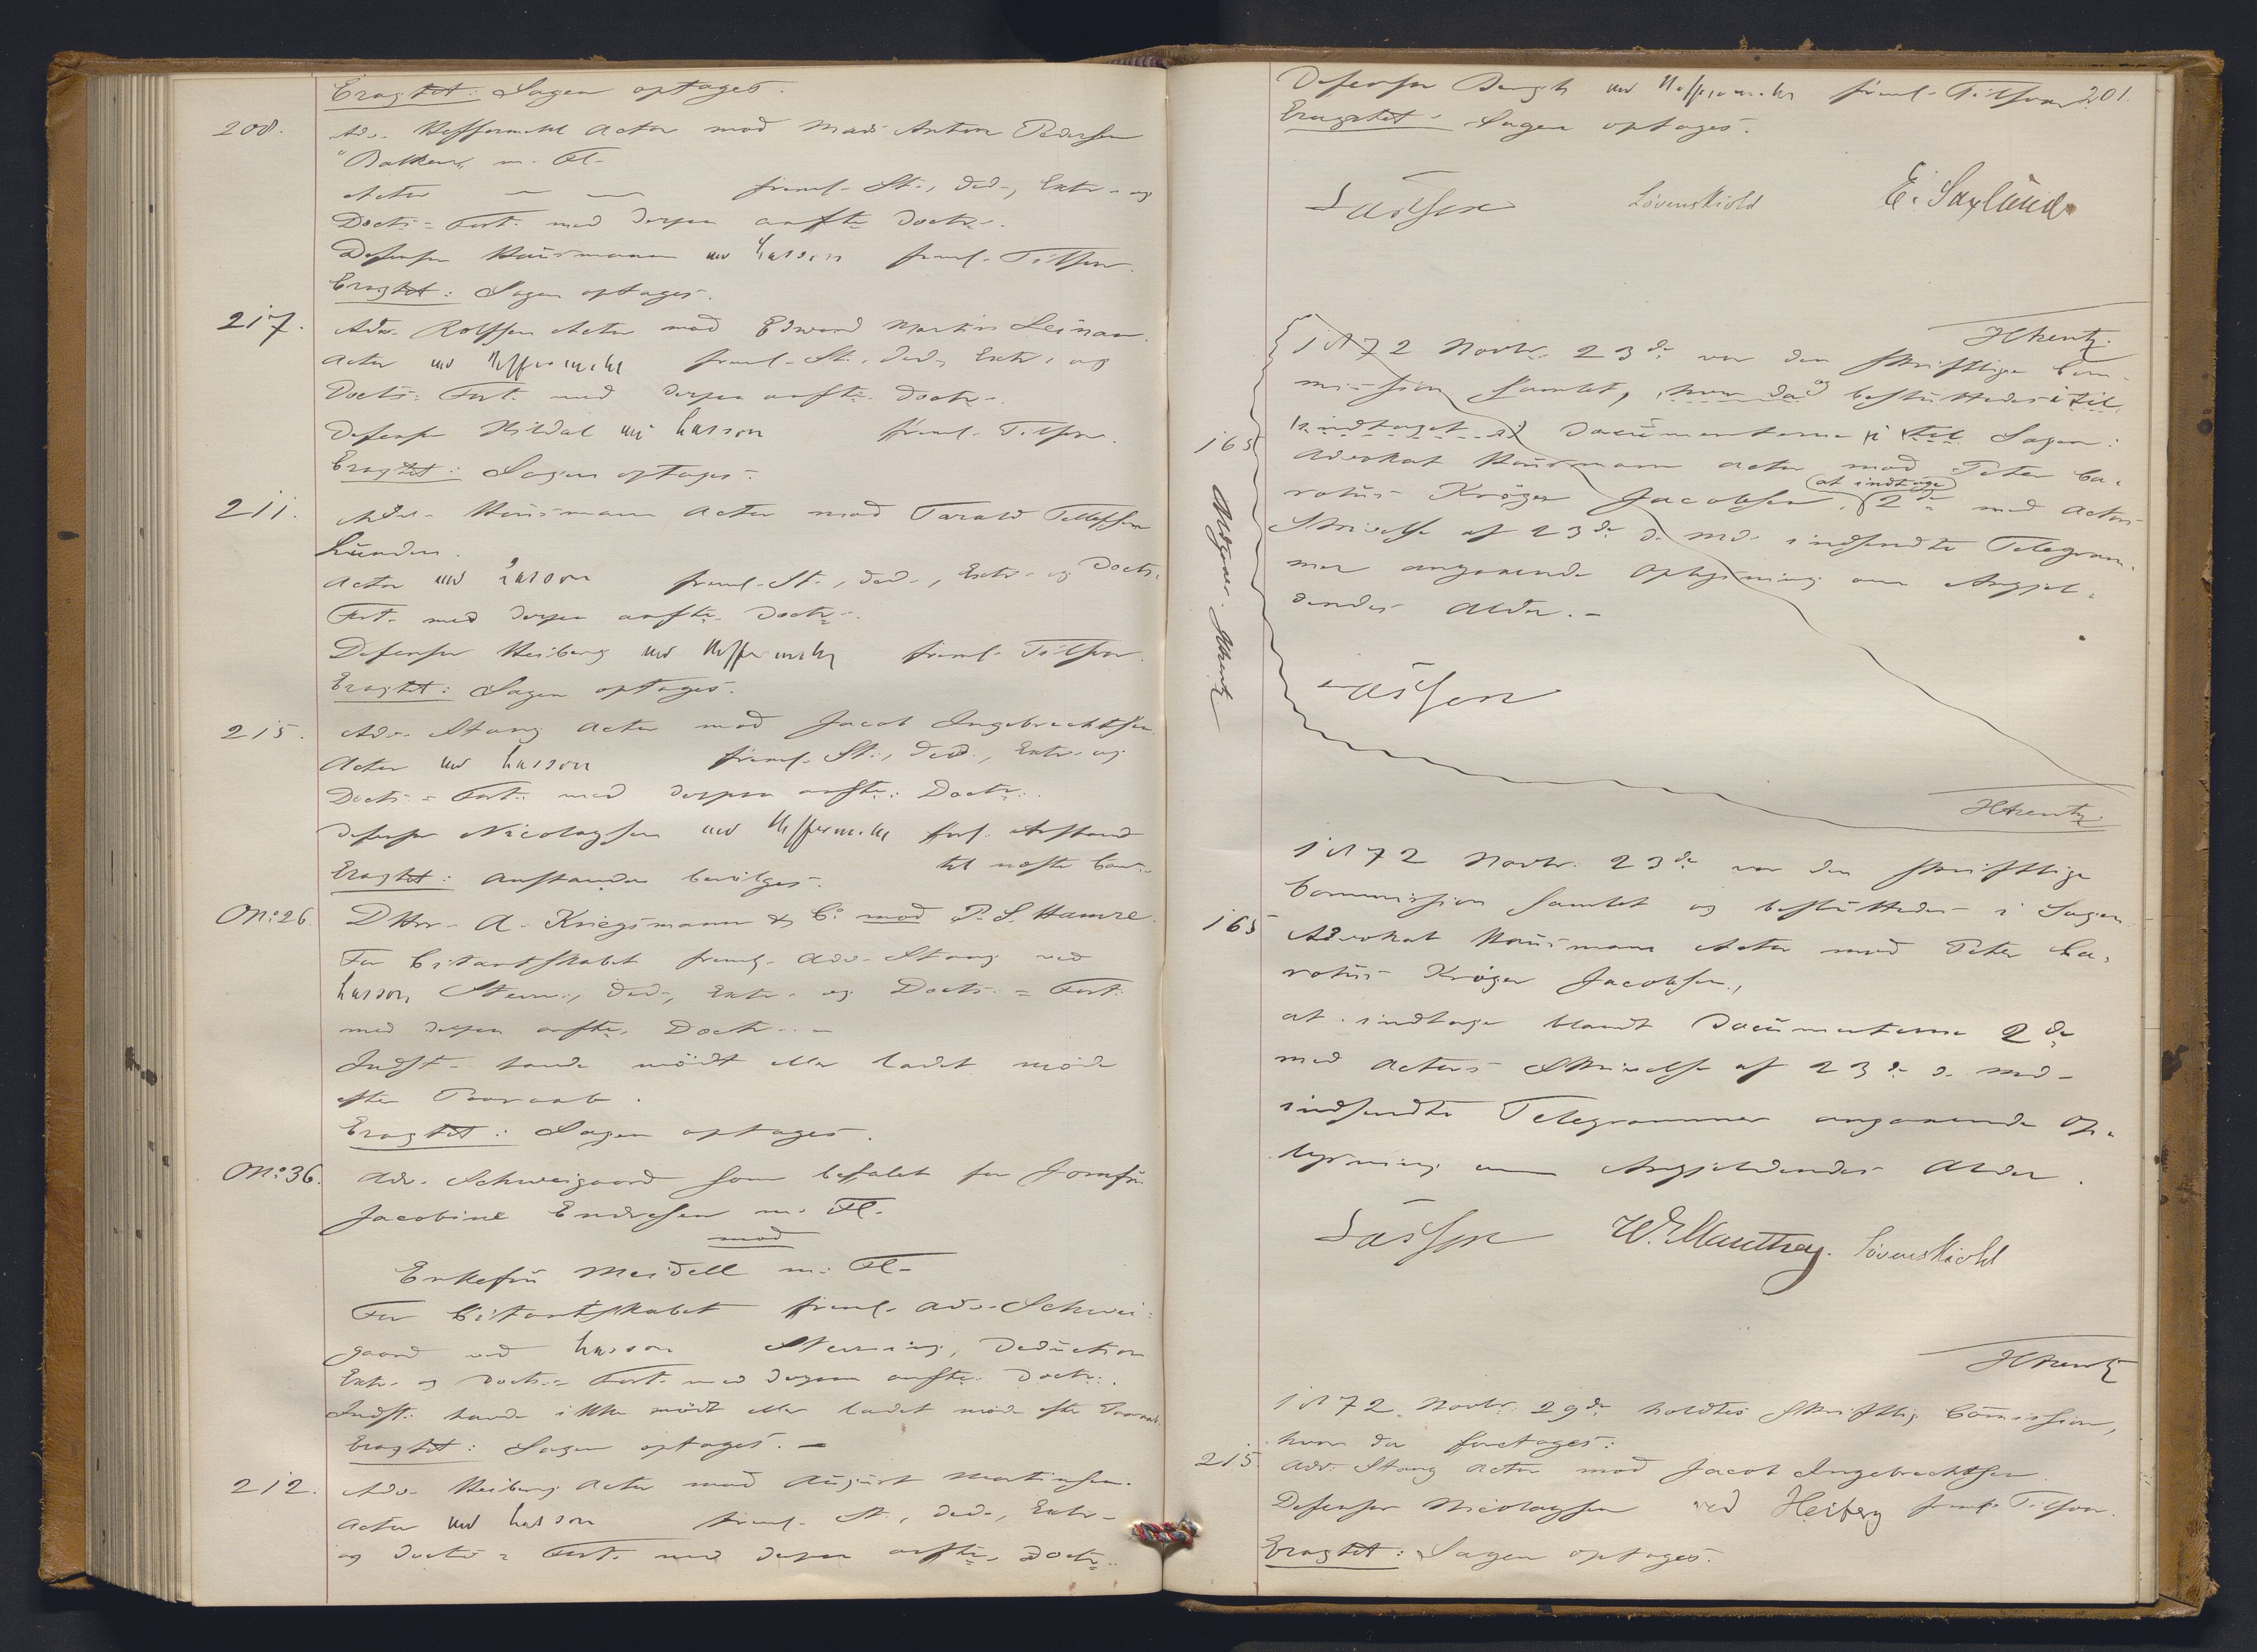 Eragtet: Sagen optages.
208. Adv. Heffermehl Actor mod Mads Anton Pedersen
"Balken" m. Fl.
Actor — — freml. St., Ded., Extr. og
Docts = Fort. med derpaa anfte Doctr.
Defensor Hansmann ved Lasson freml. Tilsvar.
Eragtet: Sagen optages.
217. Adv. Rolfsen Actor mod Edvard Martin Leinaas.
Actor ved Heffermehl freml. St., Ded., Extr. og
Docts: Fort. med derpaa anfte Doctr.
Defensor Hildal ved Lasson freml. Tilsvar.
Eragtet: Sagen optages.
211. Adv. Hansmann Actor mod Tarald Tellefsen
Lunden.
Actor ved Lasson freml. St., Ded., Extr. og Docts.
Fort. med derpaa anfte Doctr.
Defensor Heiberg ved Heffermehl freml. Tilsvar.
Eragtet: Sagen optages.
215. Adv. Stang Actor mod Jacob Ingebrechtsen.
Actor ved Lasson freml. St., Ded., Extr. og
Docts = Fort. med derpaa anfte: Doctr.
Defensor Nicolaysen ved Heffermehl forl. Anstand
til næste Com.
Eragtet: Anstanden bevilges.
No: 26. DHrr. A. Kriegsmann & Co. mod P. S. Hamre.
For Citantskabet freml. Adv. Stang ved
Lasson Stevn., Ded., Extr. og Docts. = Fort.
med derpaa anfte. Doctr. —
Indst. havde mödt eller ladet möde
efter Paaraab.
Eragtet: Sagen optages.
No: 36. Adv. Schweigaard som befalet for Jomfru
Jacobine Endresen m. Fl.
mod
Enkefru Meidell m: Fl.
For Citantskabet freml. Adv. Schwei=
gaard ved Lasson Stevning, Deduction
Extr. og Docts. = Fort. med derpaa anfte. Doctr.
Indst: havde ikke mödt eller ladet möde efter Paaraab.
Eragtet: Sagen optages. —
212. Adv. Heiberg Actor mod August Martinsen.
Actor ved Lasson freml. St., Ded., Extr.
og Docts = Fort. med derpaa anfte. Doctr.
Defensor Bergh ved Heffermehl freml. Tilsvar 201.
Eragtet: Sagen optages.
Lasson Lövenskiold E. Saxlund
HArentz.
1872 Novbr. 23de var den skriftlige Com-
mission samlet, hvor da og besluttedes i til
indtaget i Documenterne i til Sagen:
165 Advokat Hansmann Actor mod Peter Ca=
rolus Kröger Jacobsen, (at indtage) 2de med Actors
Skrivelse af 23de d. Md. indsendte Telegram=
mer angaaende Oplysning om Angjel=
dendes Alder. —
Lasson
Udgaaer. HArentz
HArentz.
1872 Novbr. 23de var den skriftlige
Commission samlet og besluttedes i Sagen
165 Advokat Hansmann Actor mod Peter Ca=
rolus Kröger Jacobsen,
at indtage blandt Documenterne 2de
med Actors Skrivelse af 23de d. Md.
indsendte Telegrammer angaaende Op=
lysning om Angjeldendes Alder.
Lasson W. Manthey. Lövenskiold
HArentz
1872 Novbr. 29de holdtes skriftlig Comission,
hvor da foretages:
215. Adv. Stang Actor mod Jacob Ingebrechtsen.
Defensor Nicolaysen ved Heiberg freml. Tilsvar.
Eragtet: Sagen optages.